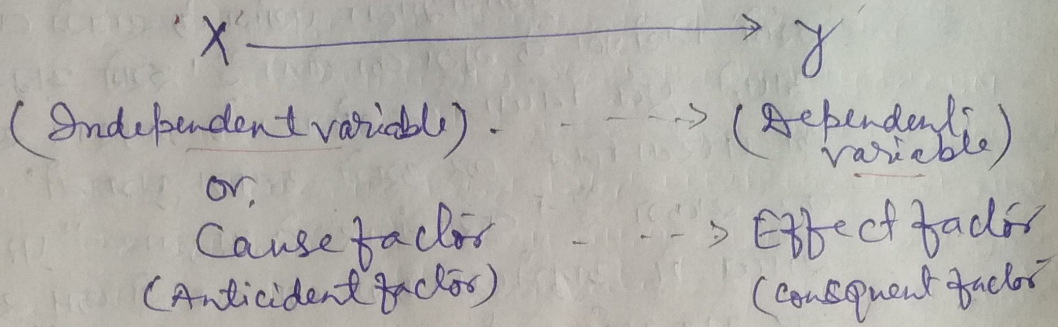 X → y
(Independent variable) . - ---> (Dependent variable)
or,
Cause factor - - -> Effect factor
(Anticident factor) (Consquent factor